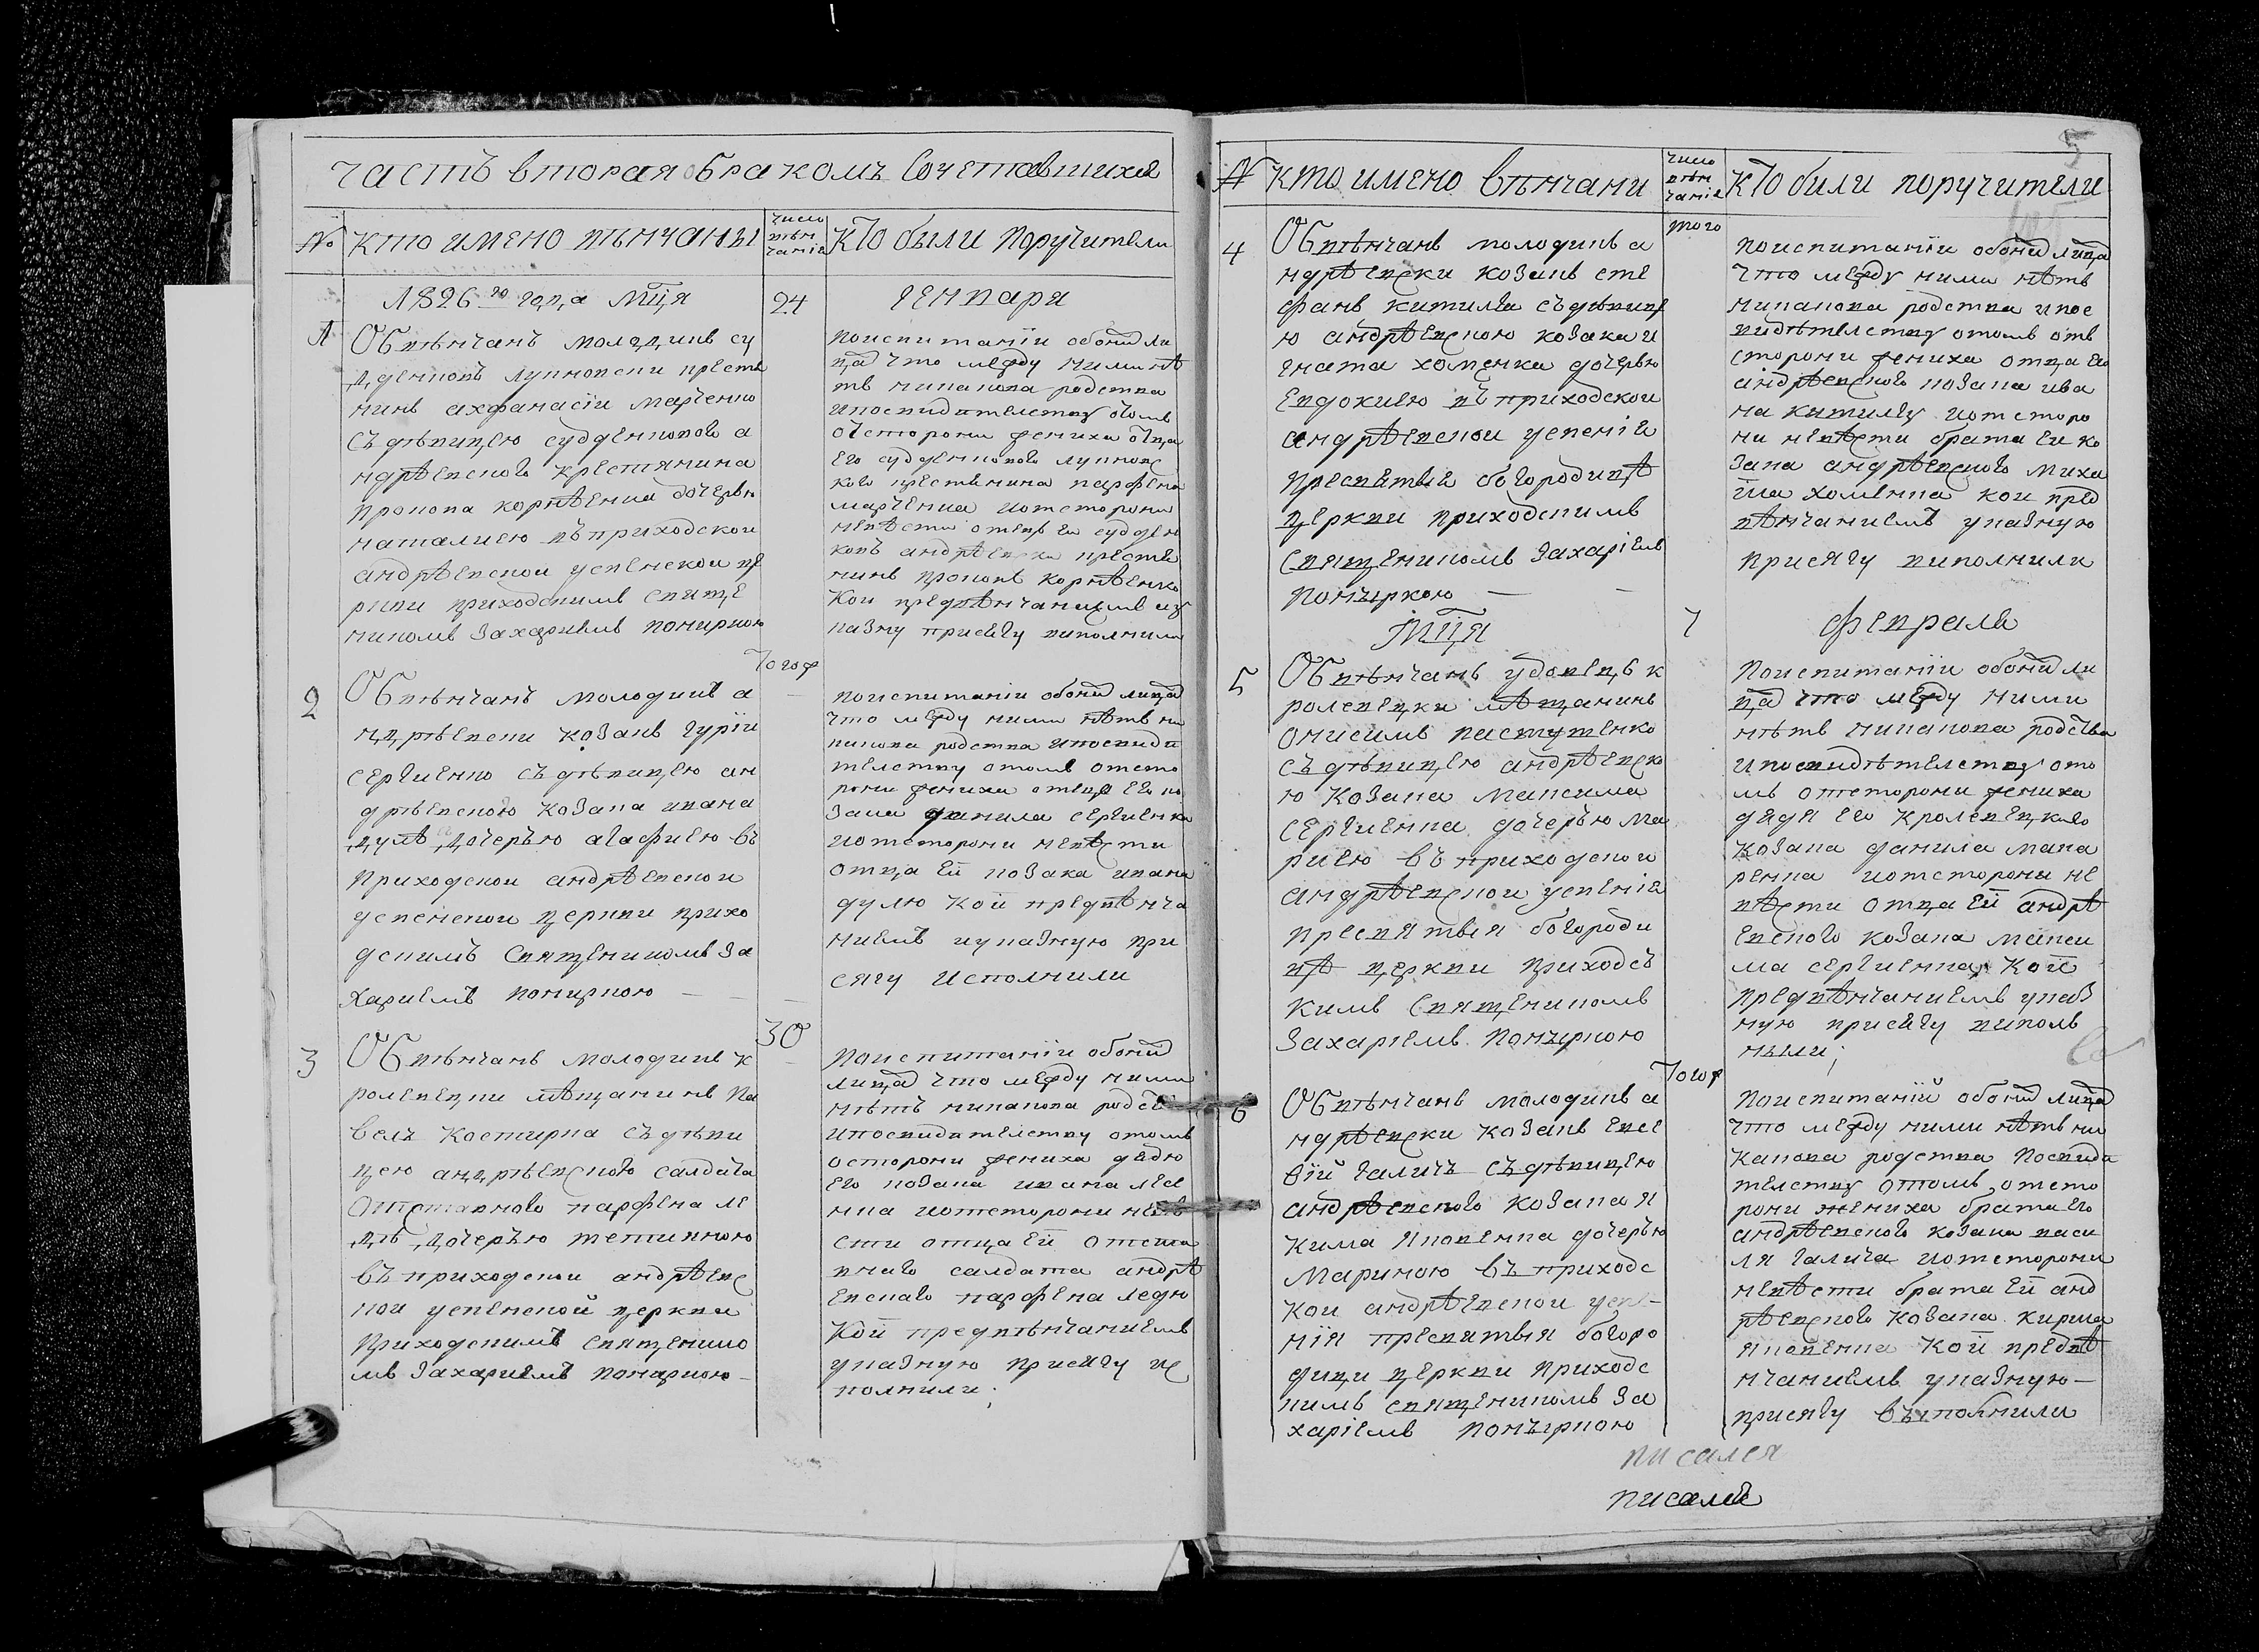 часть вторая о бракомъ сочетавшихся
№ кто имено вѣнчаны
число
вѣн
чанія
кто были поручители
1826го года мц҃я
24
генваря
1
Обвѣнчанъ молодикъ су
дденковъ лупковски крестя
нинъ ахфанасіи марченко
съ дѣвицею судденкового а
ндрѣевского крестянина
прокопа корнѣенка дочерю
наталиею въ приходской
андрѣевской успенской це
ркви приходскимъ свяще
никомъ захариемъ
поиспитаніи обоихъ ли
ца что между ними нѣ
тъ никакова родства
и посвидѣтелству отомъ
отсторони жениха отца
его судденкового лупковс
кого крестянина парфена
марченка и отсторони
невѣсти отецъ ея судден
ковъ андрѣевски крестя
нинъ прокопъ корнѣенко
кои предвѣнчаниемъ ук
казну присягу виполнили
тогож
2
Обвѣнчанъ молодикъ а
ндрѣевски козакъ гурій
сергиенко съ дѣвицею ан
дрѣевского козака ивана
дулѣ дочеръю агафиею въ
приходской андрѣевской
успенской церкви прихо
дскимъ священикомъ за
хариемъ
поиспитаніи обоихъ лица
что между ними нѣтъ ни
какова родства и посвидѣ
телству отомъ отсто
рони жениха отецъ его ко
зака данила сергиенка
и отсторони невѣсти
отца ей козака ивана
дулю кой предвѣнча
ниемъ иуказную при
сягу исполнили
30
3
Обвѣнчанъ молодикъ к
ролевецки мѣщанинъ па
велъ костирка съ дѣви
цею андрѣевского салдата
отставного парфена ле
дѣ дочеръю
въ приходской андрѣевс
кой успенской церкви
приходскимъ священико
мъ захариемъ
поиспитаніи обоихъ
лица что между ними
нѣтъ никакова родст
и посвидѣтелству отомъ
осторони жениха дядю
его козака ивана
и отсторони невѣ
сти отца ей отста
вного салдата андрѣ
евского парфена ледю
кой предвѣнчаниемъ
указную присягу ис
полнили;
5
№ кто имено вѣнчани
число
вѣн
чаніе
кто били поручители
4
того
Обвѣнчанъ молодикъ а
ндрѣевски козакъ сте
фанъ китила съ дѣвице
ю андрѣевскою козака и
гната хоменка дочерью
евдокиею въ приходской
андрѣевской успеніе
пресвятые богородицѣ
церкви приходскимъ
священикомъ захаріемъ
поиспитаніи обоихъ лица
что между ними нѣтъ
никакова родства и пос
видѣтелству отомъ отъ
сторони жениха отца его
андрѣевского козака ива
на китилу и отсторо
ни невѣсти брата еи ко
зака андрѣевского миха
ила хоменка кои пред
вѣнчаниемъ указную
присягу виполнили
мц҃я
7
февраля
5
Обвѣнчанъ удовецъ к
ролевецки мѣщанинъ
онисимъ пастушенко
съ дѣвицею андрѣевско
ю козака максима
сергиенка дочеръю ма
риею въ приходской
андрѣевской успенія
пресвятыя богороди
цѣ церкви приходсъ
кимъ священикомъ
захаріемъ
поиспитаніи обоихъ ли
ца что между ними
нѣтъ никакова родства
и посвидѣтелству ото
мъ отсторони жениха
дядя его кролевецкого
козака данила мака
ренка и отсторони не
вѣсти отца ей андрѣ
евского козака макси
ма сергиенка, кой
предвѣнчаниемъ указ
ную присягу виполъ
нили;
тогож
6
Обвѣнчанъ молодикъ а
ндрѣевски козакъ евсе
вій галичъ съ дѣвицею
андрѣевского козака я
кима яковенка дочеръю
мариною въ приходс
кои андрѣевской успе-
нія пресвятыя богоро
дици церкви приходс
кимъ священикомъ за
харіемъ
поиспитаній обоихъ лица
что между ними нѣтъ ни
какова родства посвидѣ
телству отомъ отсто
рони жениха брата его
андрѣевского козака васи
ля галича и отсторони
невѣсти брата ей анд
рѣевского козака кирила
яковенка кой предвѣ
нчаниемъ указную-
присягу въиполнили
писался
писался